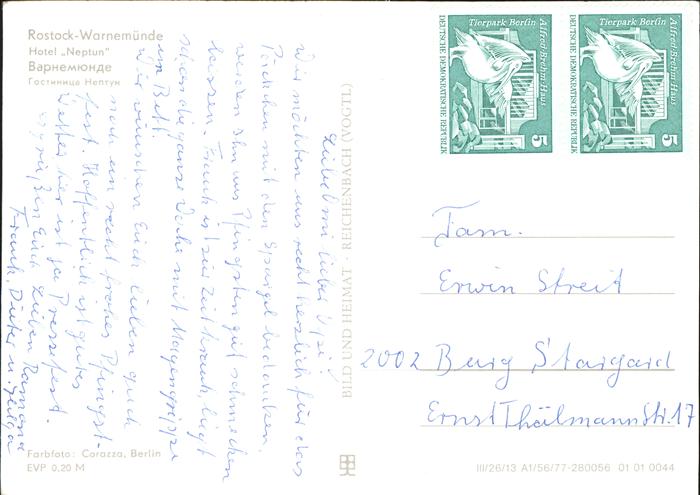 Rostock-Warnemünde
Hotel „Neptun"
Варнемюнде
Гостиница Нептун
Wir möchten uns recht herzlich für das
Päckchen mit den Spargel bedanken.
werden ihn uns Pfingsten gut schmecken
lassen. Frank ist zur Zeit krank, liegt
schon die ganze Woche mit Magengrippe
im Bett.
Wir wünschen Euch lieben auch
noch ein recht frohes Pfingst-
fest. Hoffentlich ist gutes
Wetter, hier ist ja Pressefest.
Es grüßen Euch lieben Ramona
Frank, Dieter u. Helga
Farbfoto: Corazza, Berlin
EVP 0,20 M
BILD UND HEIMAT · REICHENBACH (VOGTL)
Tierpark Berlin
Alfred-Brehm-Haus
DEUTSCHE DEMOKRATISCHE REPUBLIK
5
Tierpark Berlin
Alfred-Brehm-Haus
DEUTSCHE DEMOKRATISCHE REPUBLIK
5
Fam.
Erwin Streit
2002 Burg Stargard
Ernst Thälmann Str. 17
III/26/13 A1/56/77-280056 01 01 0044